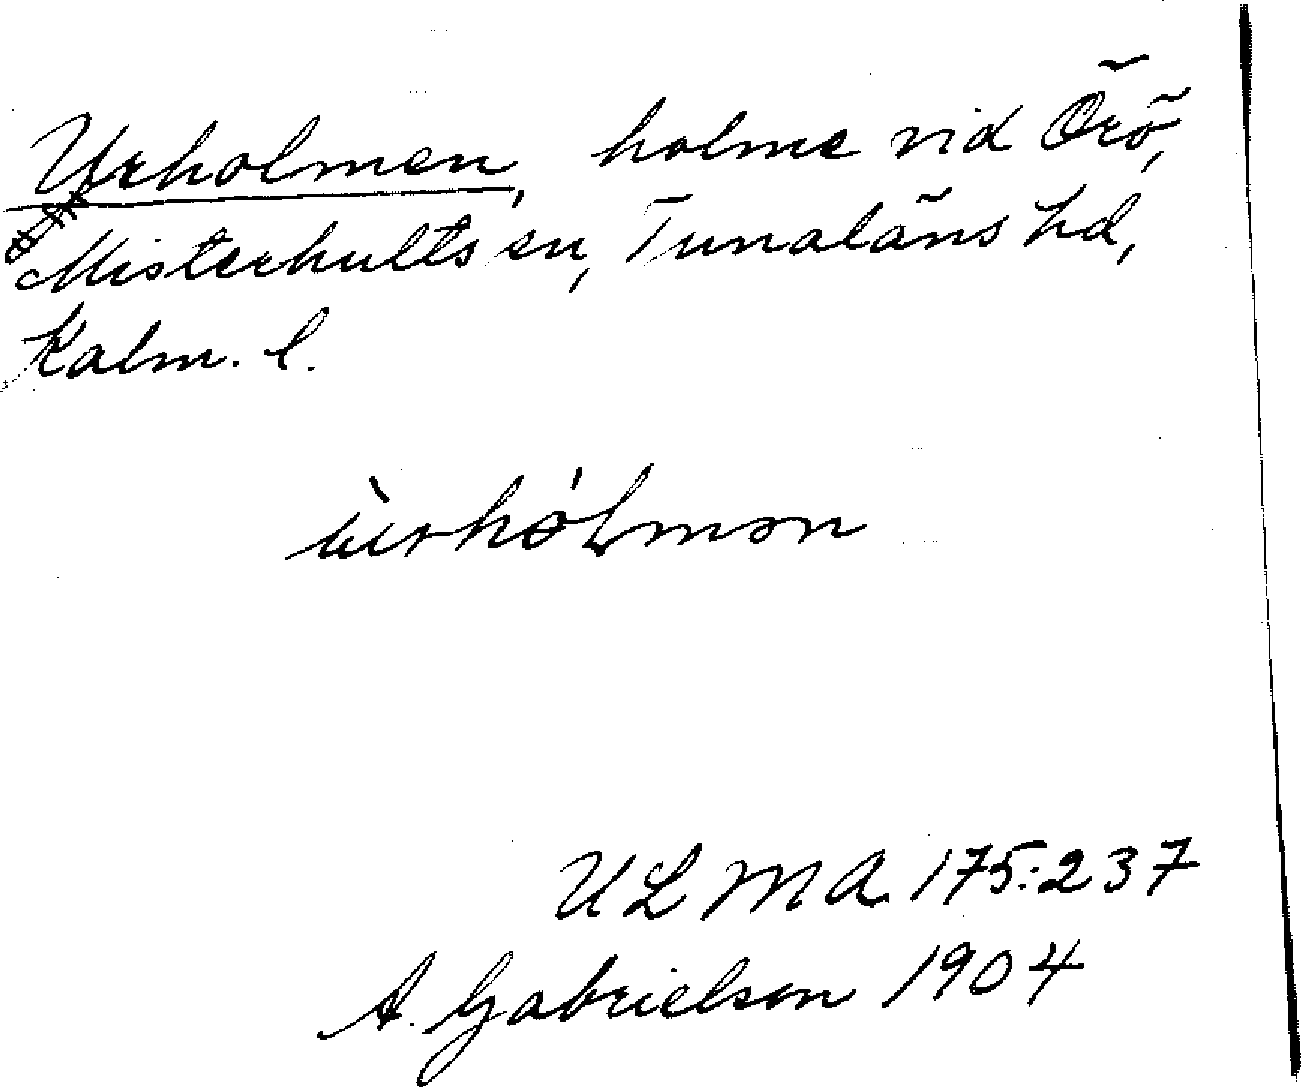 Urholmen, holme vid Örö,
Misterhults sn, Tunaläns hd,
Kalm. l.
ùrhólmən
ULMA 175:237
A. Gabrielson 1904